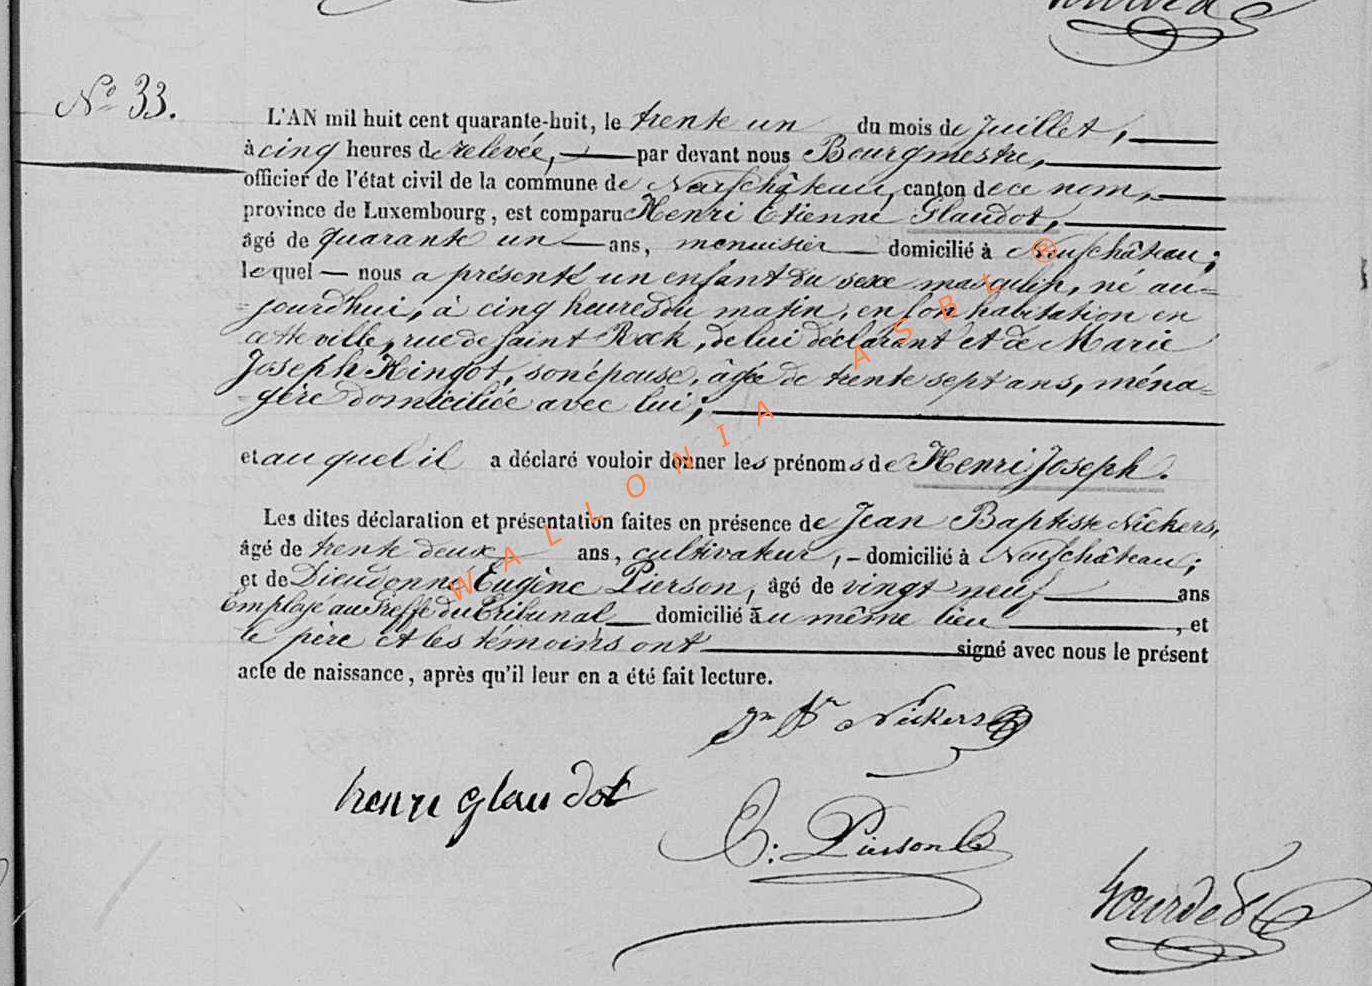 N° 33.
L'AN mil huit cent quarante-huit, le trente un du mois de Juillet,
à cinq heures de relevée, par devant nous Bourgmestre,
officier de l'état civil de la commune de Neufchâteau, canton de ce nom,
province de Luxembourg, est comparu Henri Etienne Glaudot,
âgé de quarante un ans, menuisier domicilié à Neufchâteau;
lequel — nous a présenté un enfant du sexe masculin, né au=
=jourd'hui, à cinq heures du matin, en son habitation en
cette ville, rue de Saint Roch, de lui déclarant et de Marie
Joseph Hingot, son épouse, âgée de trente sept ans, ména=
=gère domiciliée avec lui;
et auquel il a déclaré vouloir donner les prénoms de Henri Joseph.
Les dites déclaration et présentation faites en présence de Jean Baptiste Nickers,
âgé de trente deux ans, cultivateur, - domicilié à Neufchâteau;
et de Dieudonné Eugène Pierson, âgé de vingt neuf ans
Employé au Greffe du Tribunal domicilié au même lieu , et
le père et les témoins ont signé avec nous le présent
acte de naissance, après qu'il leur en a été fait lecture.
Jn Bte Nickers
henri glaudot
E: Pierson
WALLONIA ASBL ®